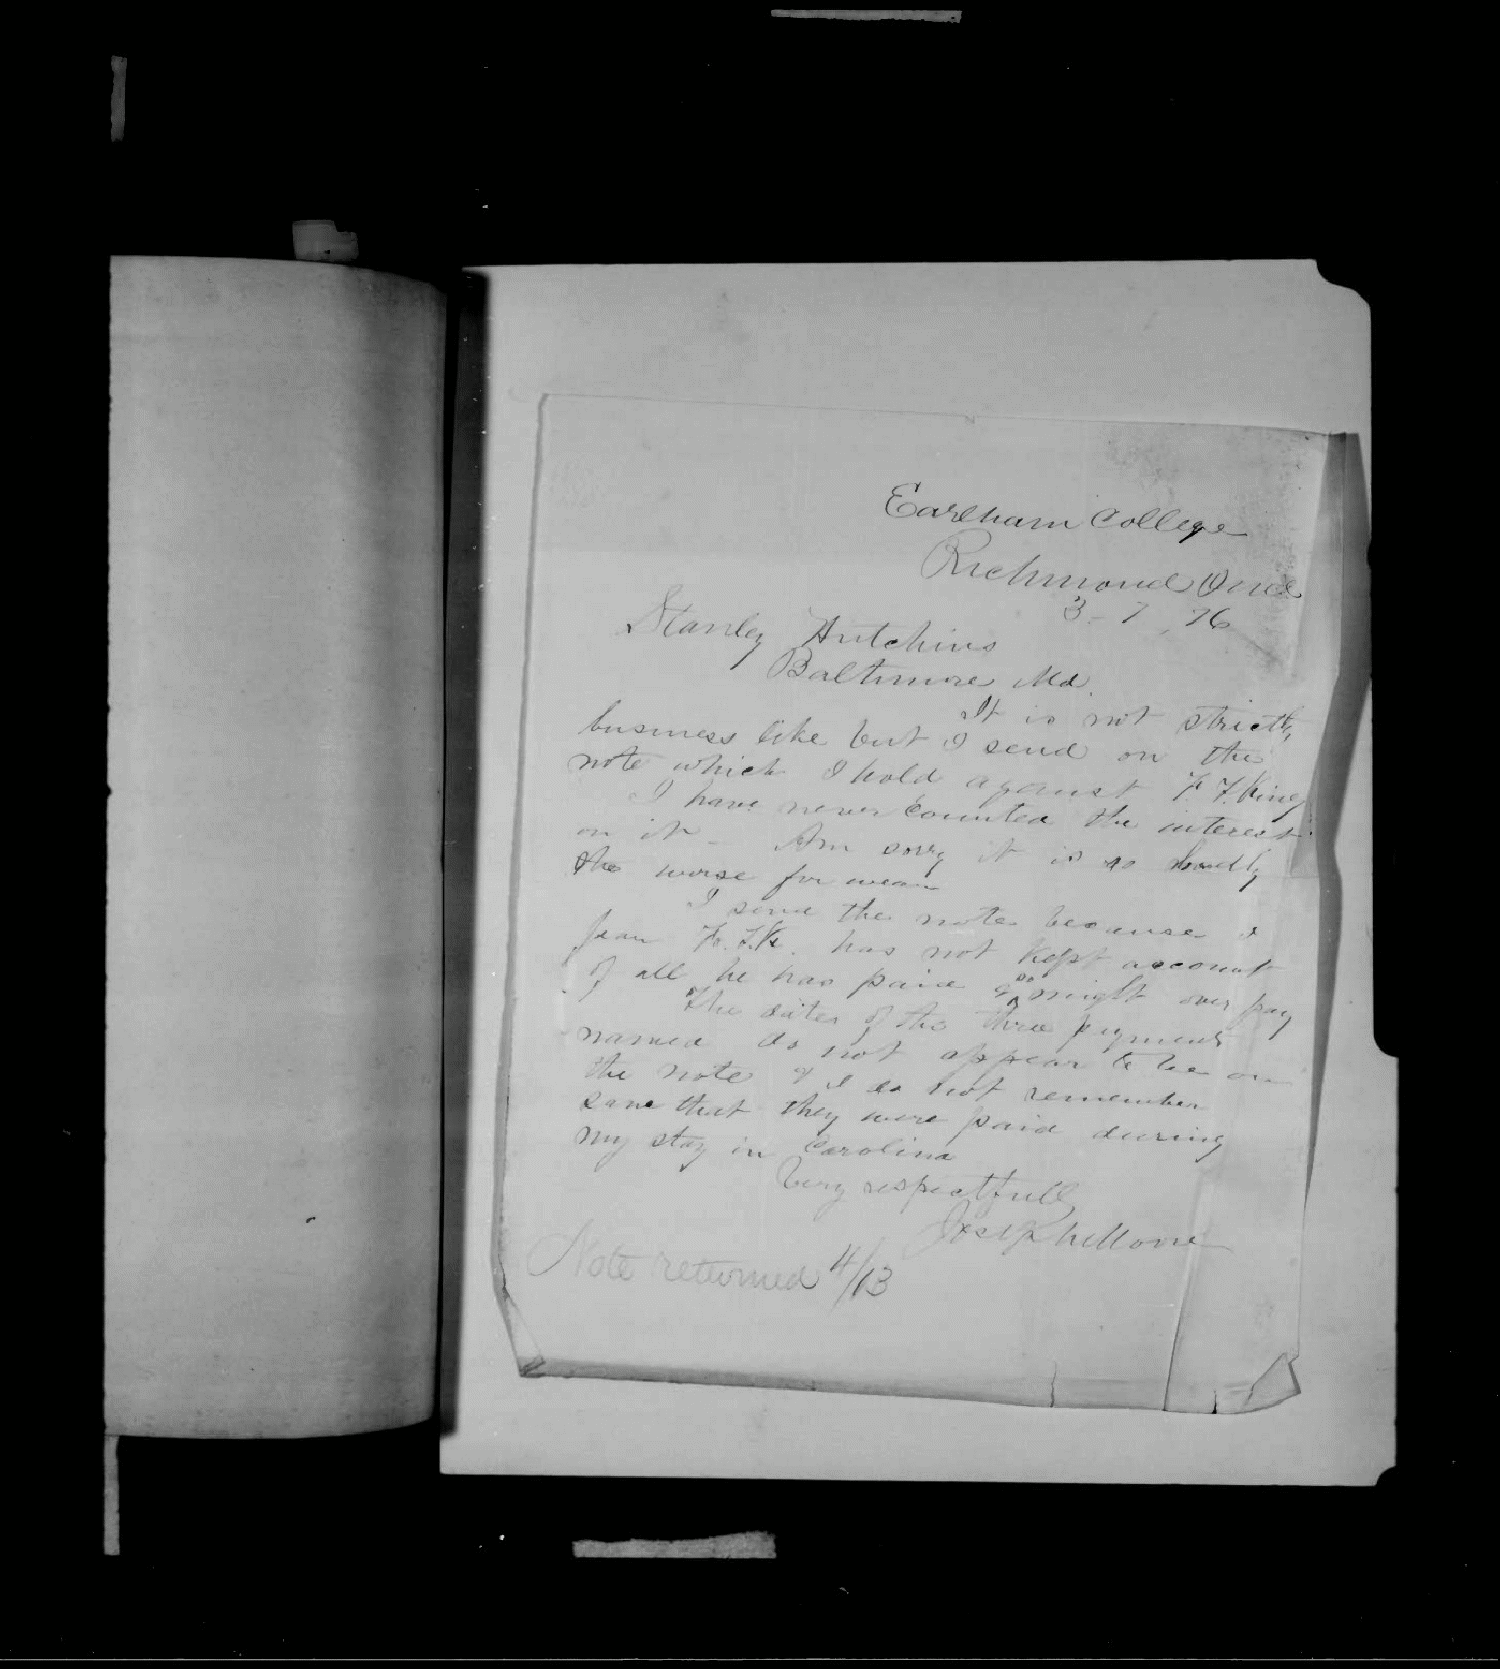 Earlham College
Richmond Ind
3-7, 76
Stanley Hutchins
Baltimore, Md.
It is not strictly
business like but I send on the
note which I hold against F. T. King
I have never counted the interest
on it - Am sorry it is so badly
the worse for wear
I send the note because I
fear F. T. K. has not kept account
of all he has paid & so might over pay
The dates of the three payments
named do not appear to be on
the note & I do not remember
save that they were paid during
my stay in Carolina
Very respectfully
Joseph Moore
Note returned 4/13